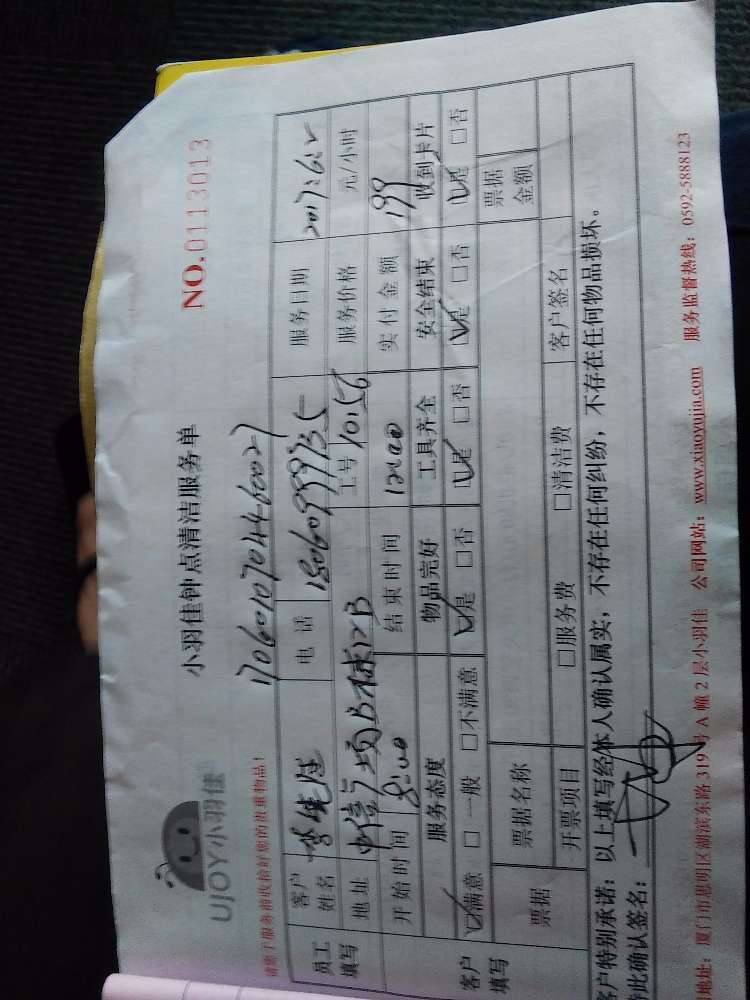 UJOY小羽佳
小羽佳钟点清洁服务单
NO.0113013
请您于服务前收拾好您的贵重物品！
1706010704460027
员工填写
客户姓名 李先生 电话 18060999735 服务日期 2017:6:2
地址 B栋12B 工号 1056 服务价格 元/小时
开始时间 8:00 结束时间 12:00 实付金额 199
客户填写
服务态度 物品完好 工具齐全 安全结束 收到卡片
☑满意 □一般 □不满意 ☑是 □否 ☑是 □否 ☑是 □否 ☑是 □否
票据 票据名称 票据金额
开票项目 □服务费 □清洁费 客户签名
客户特别承诺：以上填写经本人确认属实，不存在任何纠纷，不存在任何物品损坏。
此确认签名：
地址：厦门市思明区湖滨东路319号A幢2层小羽佳 公司网站：www.xiaoyujia.com 服务监督热线：0592-5888123